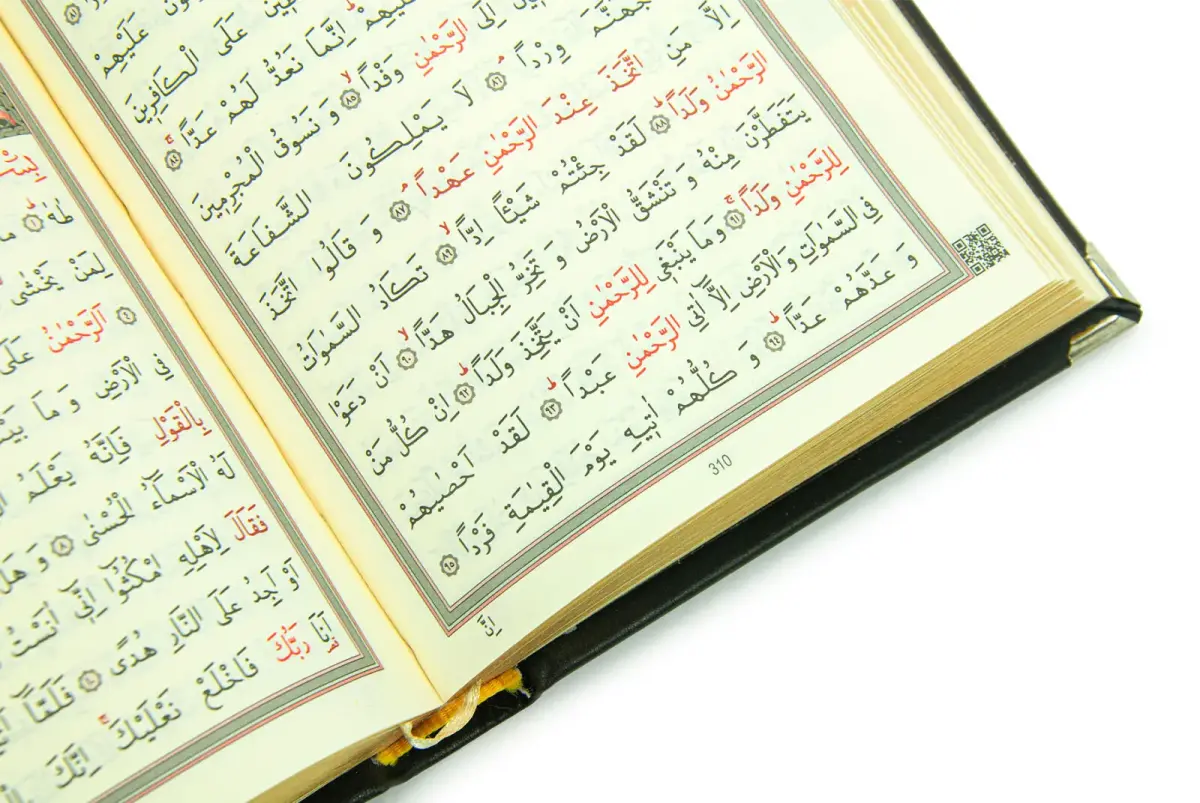 عَلَيْهِمْ
عَلَى الْكَافِرِينَ
اِنَّمَا نَعُدُّ لَهُمْ عَدًّا ٨٤
اِلَى الرَّحْمٰنِ وَفْدًا ٨٥ وَ نَسُوقُ الْمُجْرِمِينَ
جَهَنَّمَ وِرْدًا ٨٦ لَا يَمْلِكُونَ الشَّفَاعَةَ
اِلَّا مَنِ اتَّخَذَ عِنْدَ الرَّحْمٰنِ عَهْدًا ٨٧ وَ قَالُوا اتَّخَذَ
الرَّحْمٰنُ وَلَدًا ٨٨ لَقَدْ جِئْتُمْ شَيْئًا اِدًّا ٨٩ تَكَادُ السَّمٰوَاتُ
يَتَفَطَّرْنَ مِنْهُ وَ تَنْشَقُّ الْاَرْضُ وَ تَخِرُّ الْجِبَالُ هَدًّا ٩٠ اَنْ دَعَوْا
لِلرَّحْمٰنِ وَلَدًا ٩١ وَمَا يَنْبَغِي لِلرَّحْمٰنِ اَنْ يَتَّخِذَ وَلَدًا ٩٢ اِنْ كُلُّ مَنْ
فِي السَّمٰوَاتِ وَ الْاَرْضِ اِلَّا اٰتِي الرَّحْمٰنِ عَبْدًا ٩٣ لَقَدْ اَحْصٰيهُمْ
وَ عَدَّهُمْ عَدًّا ٩٤ وَ كُلُّهُمْ اٰتِيهِ يَوْمَ الْقِيٰمَةِ فَرْدًا ٩٥
310
اِنَّ
طٰهٰ ١
لِمَنْ يَخْشٰى
اَلرَّحْمٰنُ عَلَى
فِي الْاَرْضِ وَ مَا
بِالْقَوْلِ فَاِنَّهُ يَعْلَمُ
لَهُ الْاَسْمَاءُ الْحُسْنٰى ٨ وَ هَلْ
فَقَالَ لِاَهْلِهِ امْكُثُوا اِنِّي اٰنَسْتُ
اَوْ اَجِدُ عَلَى النَّارِ هُدًى ١٠ فَلَمَّا
اَنَا رَبُّكَ فَاخْلَعْ نَعْلَيْكَ اِنَّكَ